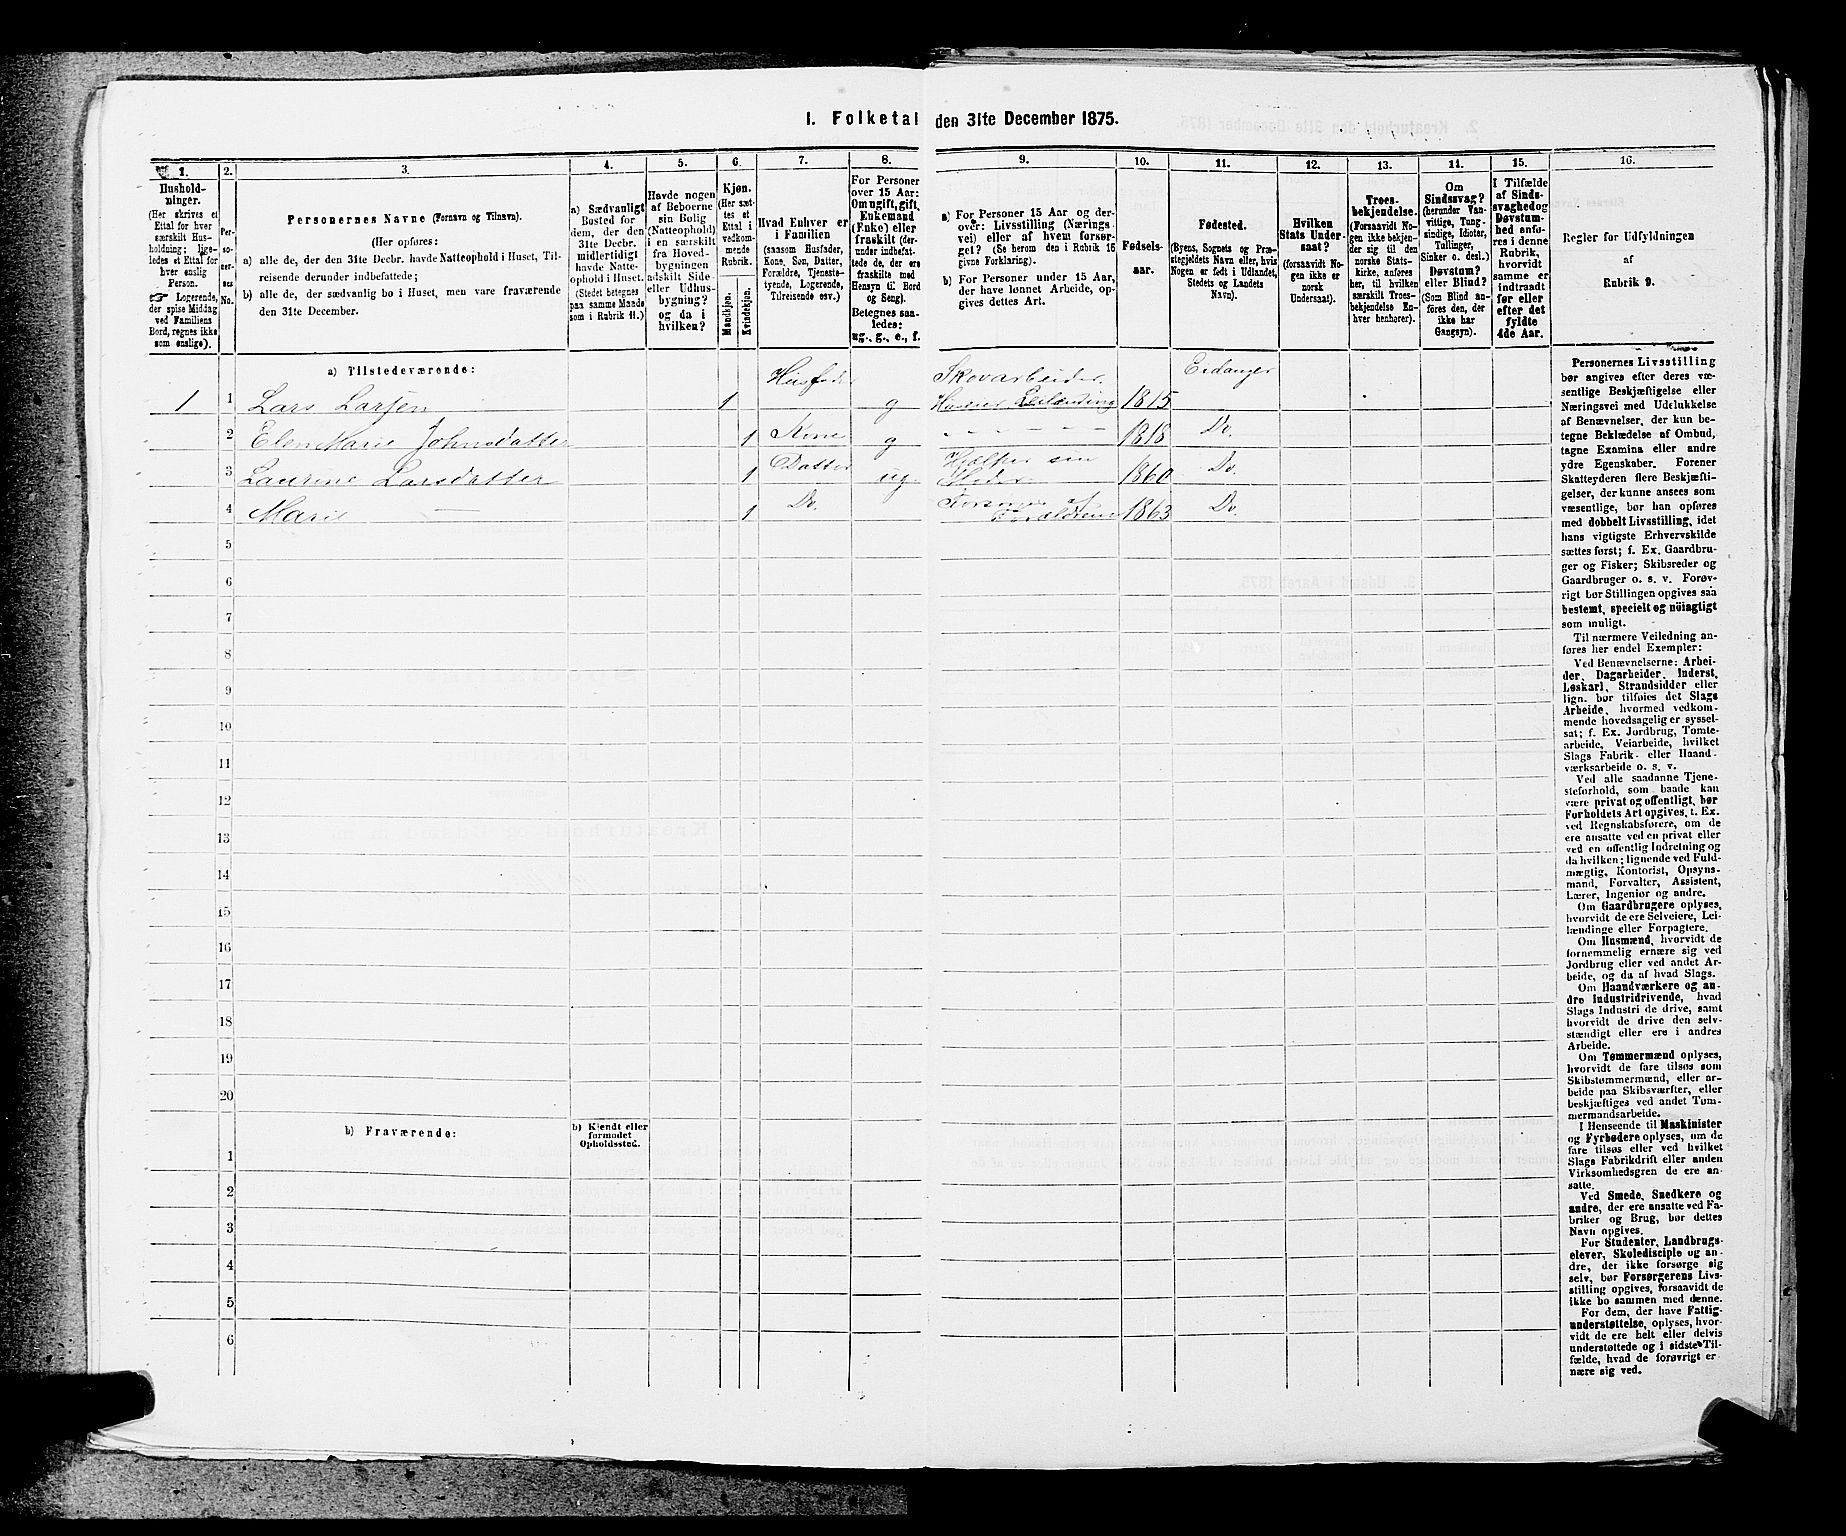 1. Folketal den 31te December 1875.
1.
Hushold-
ninger.
(Her skrives et
Ettal for hver
særskilt Hus-
holdning; lige-
ledes et Ettal for
hver enslig
Person.
☞ Logerende,
der spise Middag
ved Familiens
Bord, regnes ikke
som enslige).
2.
Per-
so-
ner-
nes
No.
3.
Personernes Navne (Fornavn og Tilnavn).
(Her opføres:
a) alle de, der den 31te Decbr. havde Natteophold i Huset, Til-
reisende derunder indbefattede;
b) alle de, der sædvanlig bo i Huset, men vare fraværende
den 31te December.
4.
a) Sædvanligt
Bosted for
dem, der den
31te Decbr.
midlertidigt
havde Natte-
ophold i Huset.
(Stedet betegnes
paa samme Maade
som i Rubrik 11.)
5.
Havde nogen
af Beboerne
sin Bolig
(Natteophold)
i en særskilt
fra Hoved-
bygningen
adskilt Side-
eller Udhus-
bygning?
og da i
hvilken?
6.
Kjøn.
(Her sæt-
tes et
Ettal i
vedkom-
mende
Rubrik.
Mandkjøn.
Kvindekjøn.
7.
Hvad Enhver er
i Familien
(saasom Husfader,
Kone, Søn, Datter,
Forældre, Tjeneste-
tyende, Logerende,
Tilreisende osv.)
8.
For Personer
over 15 Aar:
Om ugift, gift,
Enkemand
(Enke) eller
fraskilt (der-
under indbefat-
tede de, der ere
fraskilte med
Hensyn til Bord
og Seng).
Betegnes saa-
ledes:
ug., g., e., f.
9.
a) For Personer 15 Aar og der-
over: Livsstilling (Nærings-
vei) eller af hvem forsør-
get? (Se herom den i Rubrik 16
givne Forklaring).
b) For Personer under 15 Aar,
der have lønnet Arbeide, op-
gives dettes Art.
10.
Fødsels-
aar.
11.
Fødested.
(Byens, Sognets og Præ-
stegjeldets Navn eller, hvis
Nogen er født i Udlandet,
Stedets og Landets
Navn).
12.
Hvilken
Stats Under-
saat?
(forsaavidt No-
gen ikke er
norsk
Undersaat).
13.
Troes-
bekjendelse.
(Forsaavidt No-
gen ikke bekjen-
der sig til den
norske Stats-
kirke, anføres
her, til hvilken
særskilt Troes-
bekjendelse En-
hver henhører).
14.
Om
Sindssvag?
(herunder Van-
vittige, Tung-
sindige, Idioter,
Tullinger,
Sinker o. desl.)
Døvstum?
eller Blind?
(Som Blind an-
føres den, der
ikke har
Gangsyn).
15.
I Tilfælde
af Sinds-
svaghed og
Døvstum-
hed anfø-
res i denne
Rubrik,
hvorvidt
samme er
indtraadt
før eller
efter det
fyldte
4de Aar.
16.
Regler for Udfyldningen
af
Rubrik 9.
a) Tilstedeværende:
1 1 Lars Larsen 1 Husfader g Skovarbeider. 1815 Eidanger
2 Elen Marie Johnsdatter 1 Kone g - - - - - 1818 Do.
3 Laurine Larsdatter 1 Datter ug. Hjælper sin Moder 1860 Do.
4 Marie — 1 Do. Forsørges af Forældrene 1863 Do.
5
6
7
8
9
10
11
12
13
14
15
16
17
18
19
20
b) Fraværende:
b) Kjendt eller
formodet
Opholdssted.
1
2
3
4
5
6
Personernes Livsstilling
bør angives efter deres væ-
sentlige Beskjæftigelse eller
Næringsvei med Udelukkelse
af Benævnelser, der kun be-
tegne Beklædelse af Ombud,
tagne Examina eller andre
ydre Egenskaber. Forener
Skatteyderen flere Beskjæfti-
gelser, der kunne ansees som
væsentlige, bør han opføres
med dobbelt Livsstilling, idet
hans vigtigste Erhvervskilde
sættes først; f. Ex. Gaardbru-
ger og Fisker; Skibsreder og
Gaardbruger o. s. v. Forøv-
rigt bør Stillingen opgives saa
bestemt, specielt og nöiagtigt
som muligt.
Til nærmere Veiledning an-
føres her endel Exempler:
Ved Benævnelserne: Arbei-
der, Dagarbeider, Inderst,
Løskarl, Strandsidder eller
lign. bør tilføies det Slags
Arbeide, hvormed vedkom-
mende hovedsagelig er syssel-
sat; f. Ex. Jordbrug, Tomte-
arbeide, Veiarbeide, hvilket
Slags Fabrik- eller Haand-
værksarbeide o. s. v.
Ved alle saadanne Tjene-
steforhold, som baade kan
være privat og offentligt, bør
Forholdets Art opgives, t. Ex.
ved Regnskabsførere, om de
ere ansatte ved en privat eller
ved en offentlig Indretning og
da hvilken; lignende ved Fuld-
mægtig, Kontorist, Opsyns-
mand, Forvalter, Assistent,
Lærer, Ingeniør og andre.
Om Gaardbrugere oplyses,
hvorvidt de ere Selveiere, Lei-
lændinge eller Forpagtere.
Om Husmænd, hvorvidt de
fornemmelig ernære sig ved
Jordbrug eller ved andet Ar-
beide, og da af hvad Slags.
Om Haandværkere og an-
dre Industridrivende, hvad
Slags Industri de drive, samt
hvorvidt de drive den selv-
stændigt eller ere i andres
Arbeide.
Om Tømmermænd oplyses,
hvorvidt de fare tilsøs som
Skibstømmermænd, eller ar-
beide paa Skibsværfter, eller
beskjæftiges ved andet Tøm-
mermandsarbeide.
I Henseende til Maskinister
og Fyrbødere oplyses, om de
fare tilsøs eller ved hvilket
Slags Fabrikdrift eller anden
Virksomhedsgren de ere an-
satte.
Ved Smede, Snedkere og
andre, der ere ansatte ved Fa-
briker og Brug, bør dettes
Navn opgives.
For Studenter, Landbrugs-
elever, Skoledisciple og an-
dre, der ikke forsørge sig
selv, bør Forsørgerens Livs-
stilling opgives, forsaavidt de
ikke bo sammen med denne.
For dem, der have Fattig-
understøttelse, oplyses, hvor-
vidt de ere helt eller delvis
understøttede og i sidste Til-
fælde, hvad de forøvrigt er-
nære sig ved.